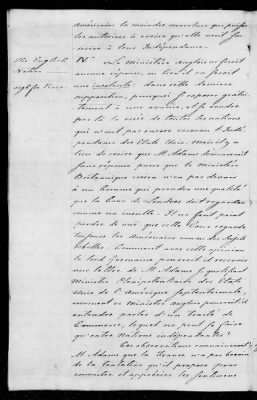 américains la moindre ouverture qui puisse
les autoriser à croire qu'elle veut sous-
crire à leur Indépendance.
The English
Nation
IVº Le Ministère Anglais ne feroit
aucune réponse, ou bien il en feroit
une insolente dans cette dernière
supposition, pourquoi s'exposer gratui-
tement à une avanie, et se rendre
par là la risée de toutes les nations
qui n'ont pas encore reconnu l'Indé-
pendance des Etats Unis. Mais il y a
lieu de croire que M. Adams demeureroit
sans réponse parce que le ministère
Britannique croira n'en pas devoir
à un homme qui prendra une qualité
que la Cour de Londres doit regarder
comme un insulte. Il ne faut point
perdre de vuë que cette Cour regarde
toujours les Américains comme des Sujets
rebelles. Comment avec cette opinion
le Lord Germaine pourroit-il recevoir
une lettre de M. Adams se qualifiant
Ministre Plenipotentiaire des Etats
Unis de l'Amérique septentrionale,
comment ce Ministre anglais pourroit-il
entendre parler d'un traité de
Commerce, lequel ne peut se faire
qu'entre nations indépendantes?
Ces observations convaincront
M. Adams que la France n'a pas besoin
de la tentative qu'il propose pour
connoitre et apprécier les sentimens